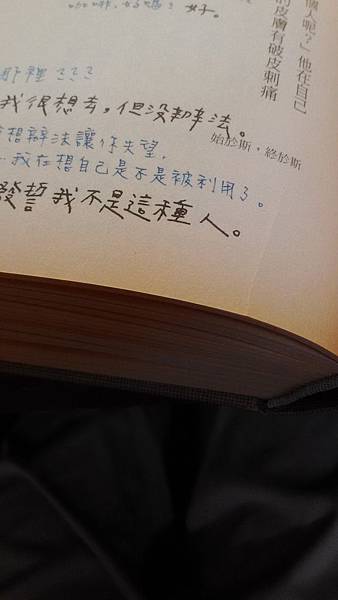 個人呢？」他在自己
的皮膚有破皮刺痛
始於斯，終於斯
咖啡，好嗎？ 好。
那裡？？？
我很想去，但沒辦法。
想辦法讓你失望，
我在想自己是不是被利用了。
發誓我不是這種人。